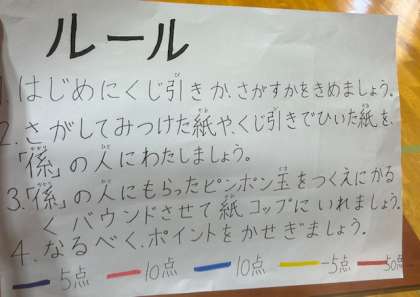 ルール
1. はじめにくじ引きか、さがすかをきめましょう。
2. さがしてみつけた紙や、くじ引きでひいた紙を、
「係」の人にわたしましょう。
3.「係」の人にもらったピンポン玉をつくえにかる
くバウンドさせて紙コップにいれましょう。
4. なるべく、ポイントをかせぎましょう。
5点 10点 10点 -5点 50点